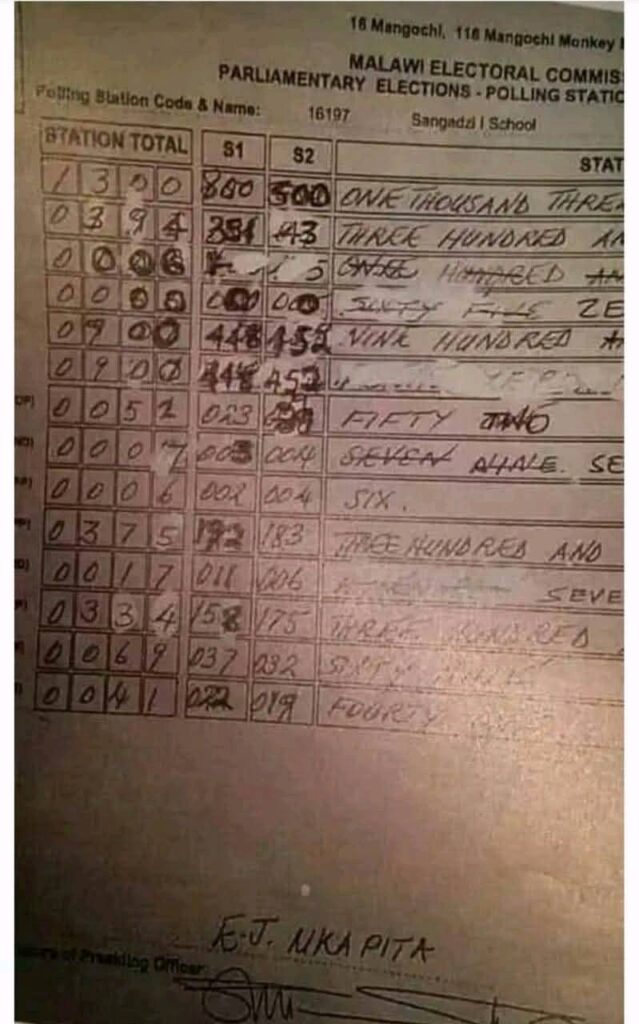 16 Mangochi, 116 Mangochi Monkey
MALAWI ELECTORAL COMMIS
PARLIAMENTARY ELECTIONS - POLLING STATIO
Polling Station Code & Name: 16197 Sangadzi I School
STATION TOTAL S1 S2 STAT
1 3 0 0 800 500 ONE THOUSAND THREE
0 3 9 4 351 43 THREE HUNDRED AN
0 0 0 6 5 ONE HUNDRED AN
0 0 0 0 000 000 SIXTY FIVE ZE
0 9 0 0 448 452 NINE HUNDRED
0 9 0 0 448 452
0 0 5 2 023 FIFTY TWO
0 0 0 7 003 004 SEVEN SE
0 0 0 6 002 004 SIX.
0 3 7 5 192 183 THREE HUNDRED AND
0 0 1 7 011 006 SEVE
0 3 3 4 158 175 THREE HUNDRED
0 0 6 9 037 032 SIXTY NINE
0 0 4 1 022 019 FOURTY
E.J. MKAPITA
of Presiding Officer